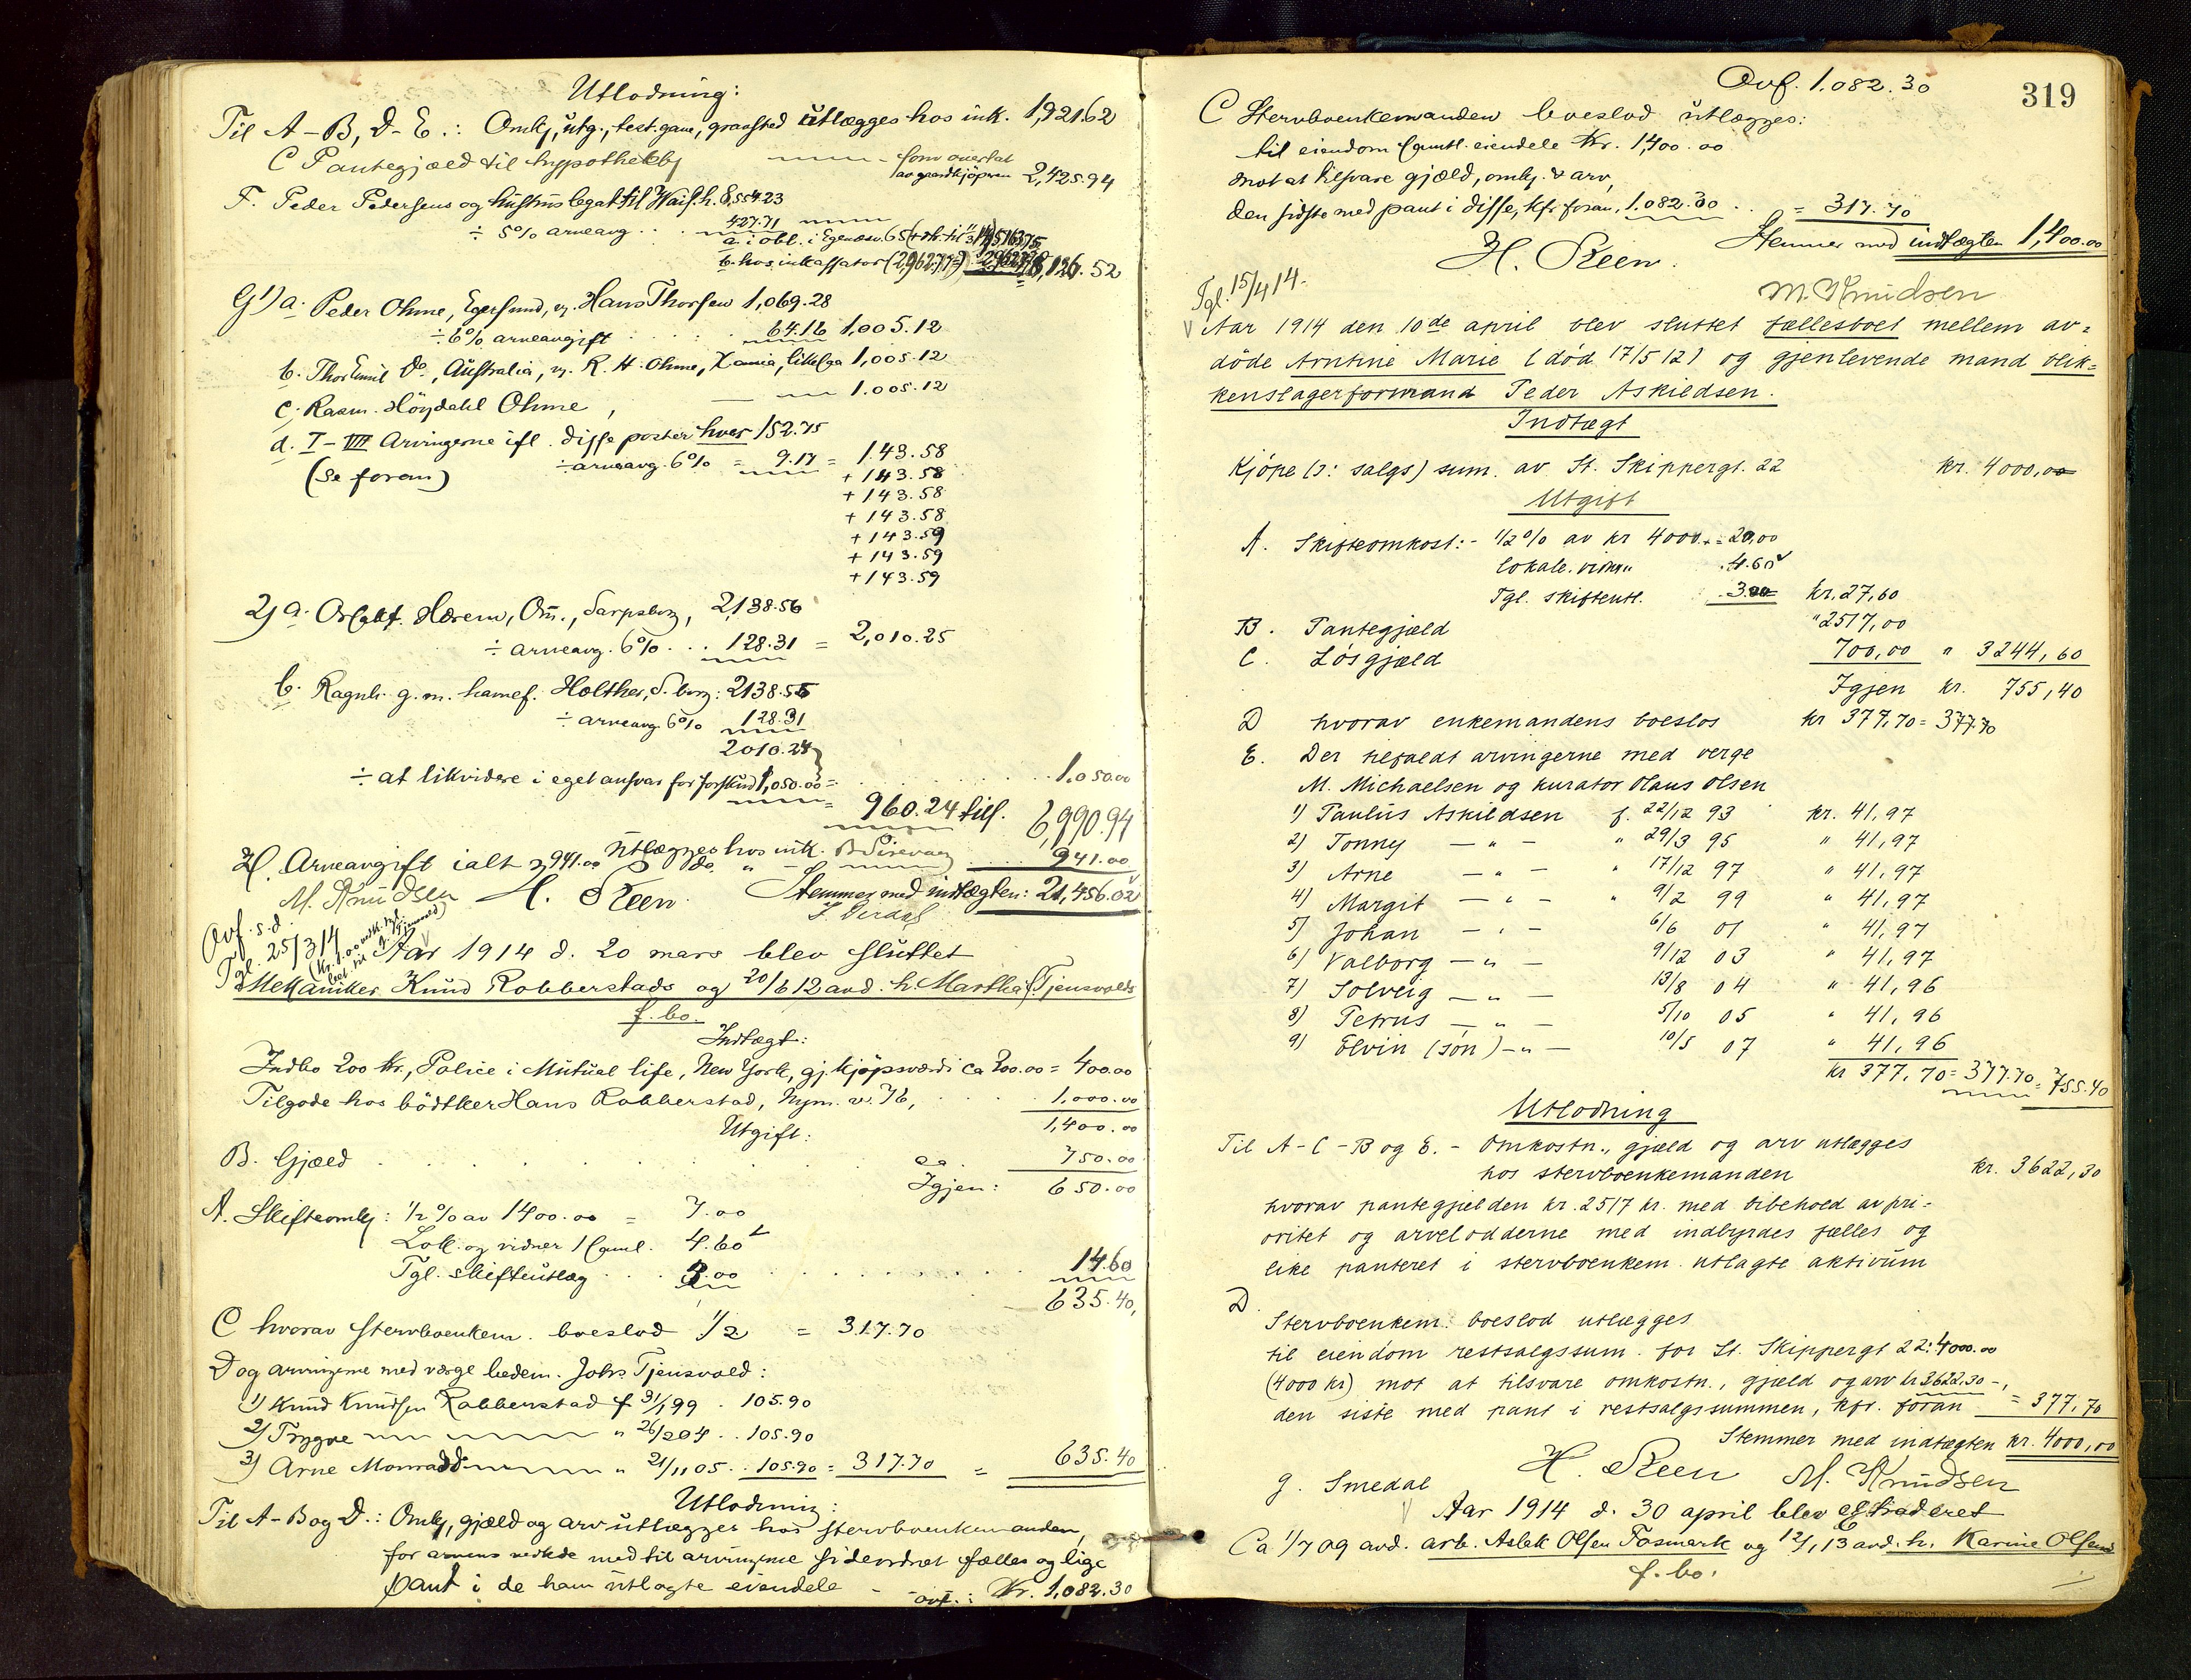 Utlodning:
Til A-B, D-E.: Omk, utg., test.gave, gravsted utlægges hos ink. 1,921.62
C Pantegjæld til hypothekbk som overlat
av gaardkjøperen 2,425.94
F. Peder Pedersens og hustrus legat til Waish. 8,554.23
÷ 5% arveavg. . . 427.71
a. i obl. i Egenæsv. 65
b. hos inkassator (2,962.77=) 8,126.52
G 1) a. Peder Ohme, Egersund, v. Hans Thorsen 1,069.28
÷ 6% arveavgift . . . 64.16 1,005.12
b. Thor Emil Do, Australia, v. R. H. Ohme, Xania, likesaa 1,005.12
c. Rasm. Höydahl Ohme, 1.005.12
d. I-VII Arvingerne ifl. disse poster hver 152.75
(se foran) ÷ arveavg. 6% = 9.17 = 143.58
+ 143.58
+ 143.58
+ 143.58
+ 143.59
+ 143.59
+ 143.59
2) a. Hærem, Sarpsborg, 2,138.56
÷ arveavg. 6% . . . 128.31 = 2,010.25
b. Ragnh. g. m. Holther, S.borg: 2138.55
÷ arveavg. 6% 128.31
2010.24
÷ at likvidere i eget ansvar for forskud 1,050.00 = 1,050.00
= 960.24 tils. 6,990.94
Utlægges hos ink.
H. Arveavgift ialt 941.00 do. 941.00
M. Knudsen H. Steen Stemmer med indtægten: 21,456.02
Ovf. s. d.
Tgl. 25/3 14
Aar 1914 d. 20 mars blev sluttet
Mekaniker Knud Robberstads og 20/6 12 avd. h. Martha f. Tjensvolds
f. bo.
Indtægt:
Indbo 200 kr., Police i Mutual life, New York, gj.kjøpsværdi ca 200.00 = 400.00
Tilgode hos bödtker Hans Robberstad, Nym. v. 76, 1,000.00
1,400.00
Utgift:
B. Gjæld ca. 750.00
Igjen: 650.00
A. Skifteomk: 1/2 % av 1400.00 = 7.00
Lok. og vidner 1 saml. 4.60
Tgl. skifteutlæg . . . 3.00 14.60
635.40,
C hvorav stervboenkem. boeslod 1/2 = 317.70
D og arvingerne med værge bedem. Johs Tjensvold:
1) Knud Knudsen Robberstad f 31/1 99 . 105.90
2) Trygve " 26/2 04 . . 105.90
3) Arne Monradd " 21/11 05 . . 105.90 = 317.70 = 635.40
Utlodning:
Til A-B og D.: Omk, gjæld og arv utlægges hos stervboenkemanden,
for arvens vedk.de med til arvingerne sideordnet fælles og lige
pant i de ham utlagte eiendele - ovf.: Kr. 1,082.30
319
Ovf. 1.082.30
C Stervboenkemanden boeslod utlægges:
til eiendom samtl. eiendele Kr. 1,400.00
mot at tilsvare gjæld, omk. & arv,
den sidste med pant i disse, kfr. foran, 1.082.30 . . = 317.70
Stemmer med indtægten 1,400.00
H. Steen.
M. Knudsen
Tgl. 15/4 14.
Aar 1914 den 10de april blev sluttet fællesboet mellem av=
döde Arntine Marie (död 17/5 12) og gjenlevende mand blik=
kenslagerformand Peder Askildsen.
Indtægt
Kjöpe (ɔ: salgs) sum. av St. Skippergt. 22 kr. 4000,00
Utgift
A. Skifteomkost: - 1/2 % av kr 4000.- = 20,00
lokale. vidn. 4.60
Tgl. skifteutl. 3.00 kr. 27,60
B. Pantegjæld " 2517,00
C. Lösgjæld 700,00 " 3244,60
Igjen kr. 755,40
D hvorav enkemandens boeslos kr 377,70 = 377.70
E. Der tilfaldt arvingerne med verge
M. Michaelsen og kurator Olaus Olsen
1) Paulus Askildsen f. 22/12 93 kr. 41,97
2) Tonny — " — " 29/3 95 " 41,97
3) Arne — " — " 17/12 97 " 41,97
4) Margit — " — " 9/2 99 " 41,97
5) Johan — " — 6/6 01 " 41,97
6) Valborg — " — 9/12 03 " 41,97
7) Solveig — " — 13/8 04 " 41,96
8) Petrus — " — 5/10 05 " 41,96
9) Elvin (sön) — " — 10/5 07 " 41,96
kr 377,70 = 377.70 = 755.40
Utlodning
Til A - C - B og E. - Omkostn., gjæld og arv utlægges
hos stervboenkemanden kr. 3622,30
hvorav pantegjelden kr. 2517 kr. med bibehold av pri=
oritet og arvelodderne med indbyrdes fælles og
like panteret i stervboenkem. utlagte aktivum
D.
Stervboenkem. boeslod utlægges
til eiendom restsalgssum. for St. Skippergt 22: 4000.00
(4000 kr) mot at tilsvare omkostn., gjæld og arv kr 3622.30 -,
den siste med pant i restsalgssummen, kfr. foran = 377,70
Stemmer med indtægten kr. 4000,00
G. Smedal H. Steen M. Knudsen
Aar 1914 d. 30 april blev extraderet
Ca 1/7 09 avd. arb. Aslak Olsen Fosmark og 12/1 13 avd. h. Karine Olsens
f. bo.